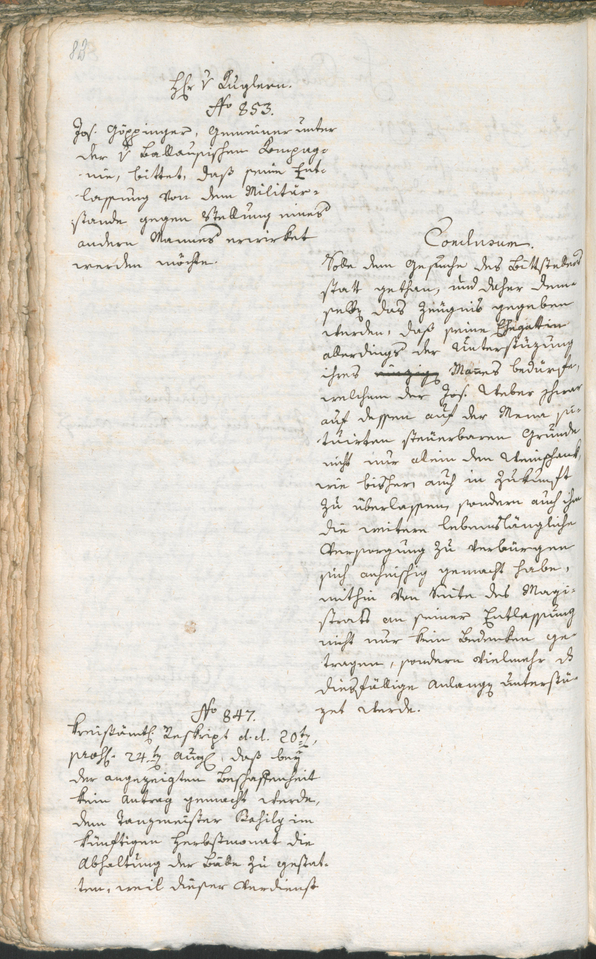 83
Hr. v Kuglern.
No 853.
Jos. Göppinger, Gemeiner unter
der v Ballausischen Compag-
nie, bittet, daß seine Ent-
lassung von dem Militär-
stande gegen Stellung eines
andern Mannes erwirket
werden möchte.
Conclusum.
Solle dem Gesuche des Bittstellers
statt gethan, und daher dem-
selben das Zeugnis gegeben
werden, daß seine Ehegattin
allerdings der Unterstüzung
ihres Mannes bedürfe,
welchem der Jos. Weber
auf dessen auf der Mena si-
tuirten steuerbaren Grunde
nicht nur allein den Weinschank
wie bisher, auch in Zukunft
zu überlassen, sondern auch ihm
die weitere lebenslängliche
Versorgung zu verbürgen
sich anheischig gemacht habe,
mithin von Seite des Magi-
strats an seiner Entlassung
nicht nur kein Bedenken ge-
tragen, sondern vielmehr d
diesfällige Anlangen unterstü-
zet werde.
No 847.
Kreisämtl. Reskript d.d. 20ten,
24ten Aug. daß bey
der angezeigten Beschaffenheit
kein Antrag gemacht werde,
dem Tanzmeister im
künftigen Herbstmonat die
Abhaltung der Bälle zu gestat-
ten, weil dieser Verdienst